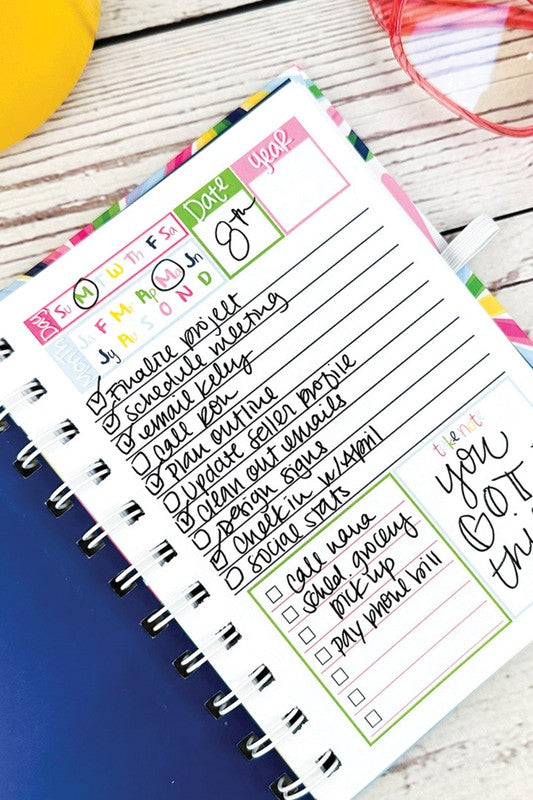 Day Su M T W Th F Sa
Date
8th
Year
Month Ja F Mr Ap Ma Jn
Jy Au S O N D
finalize project
schedule meeting
email kelly
call ron
plan outline
update seller profile
clean out emails
design signs
check in w/April
social stats
call nana
sched grocery
pick-up
pay phone bill
take note
you
GOT
this